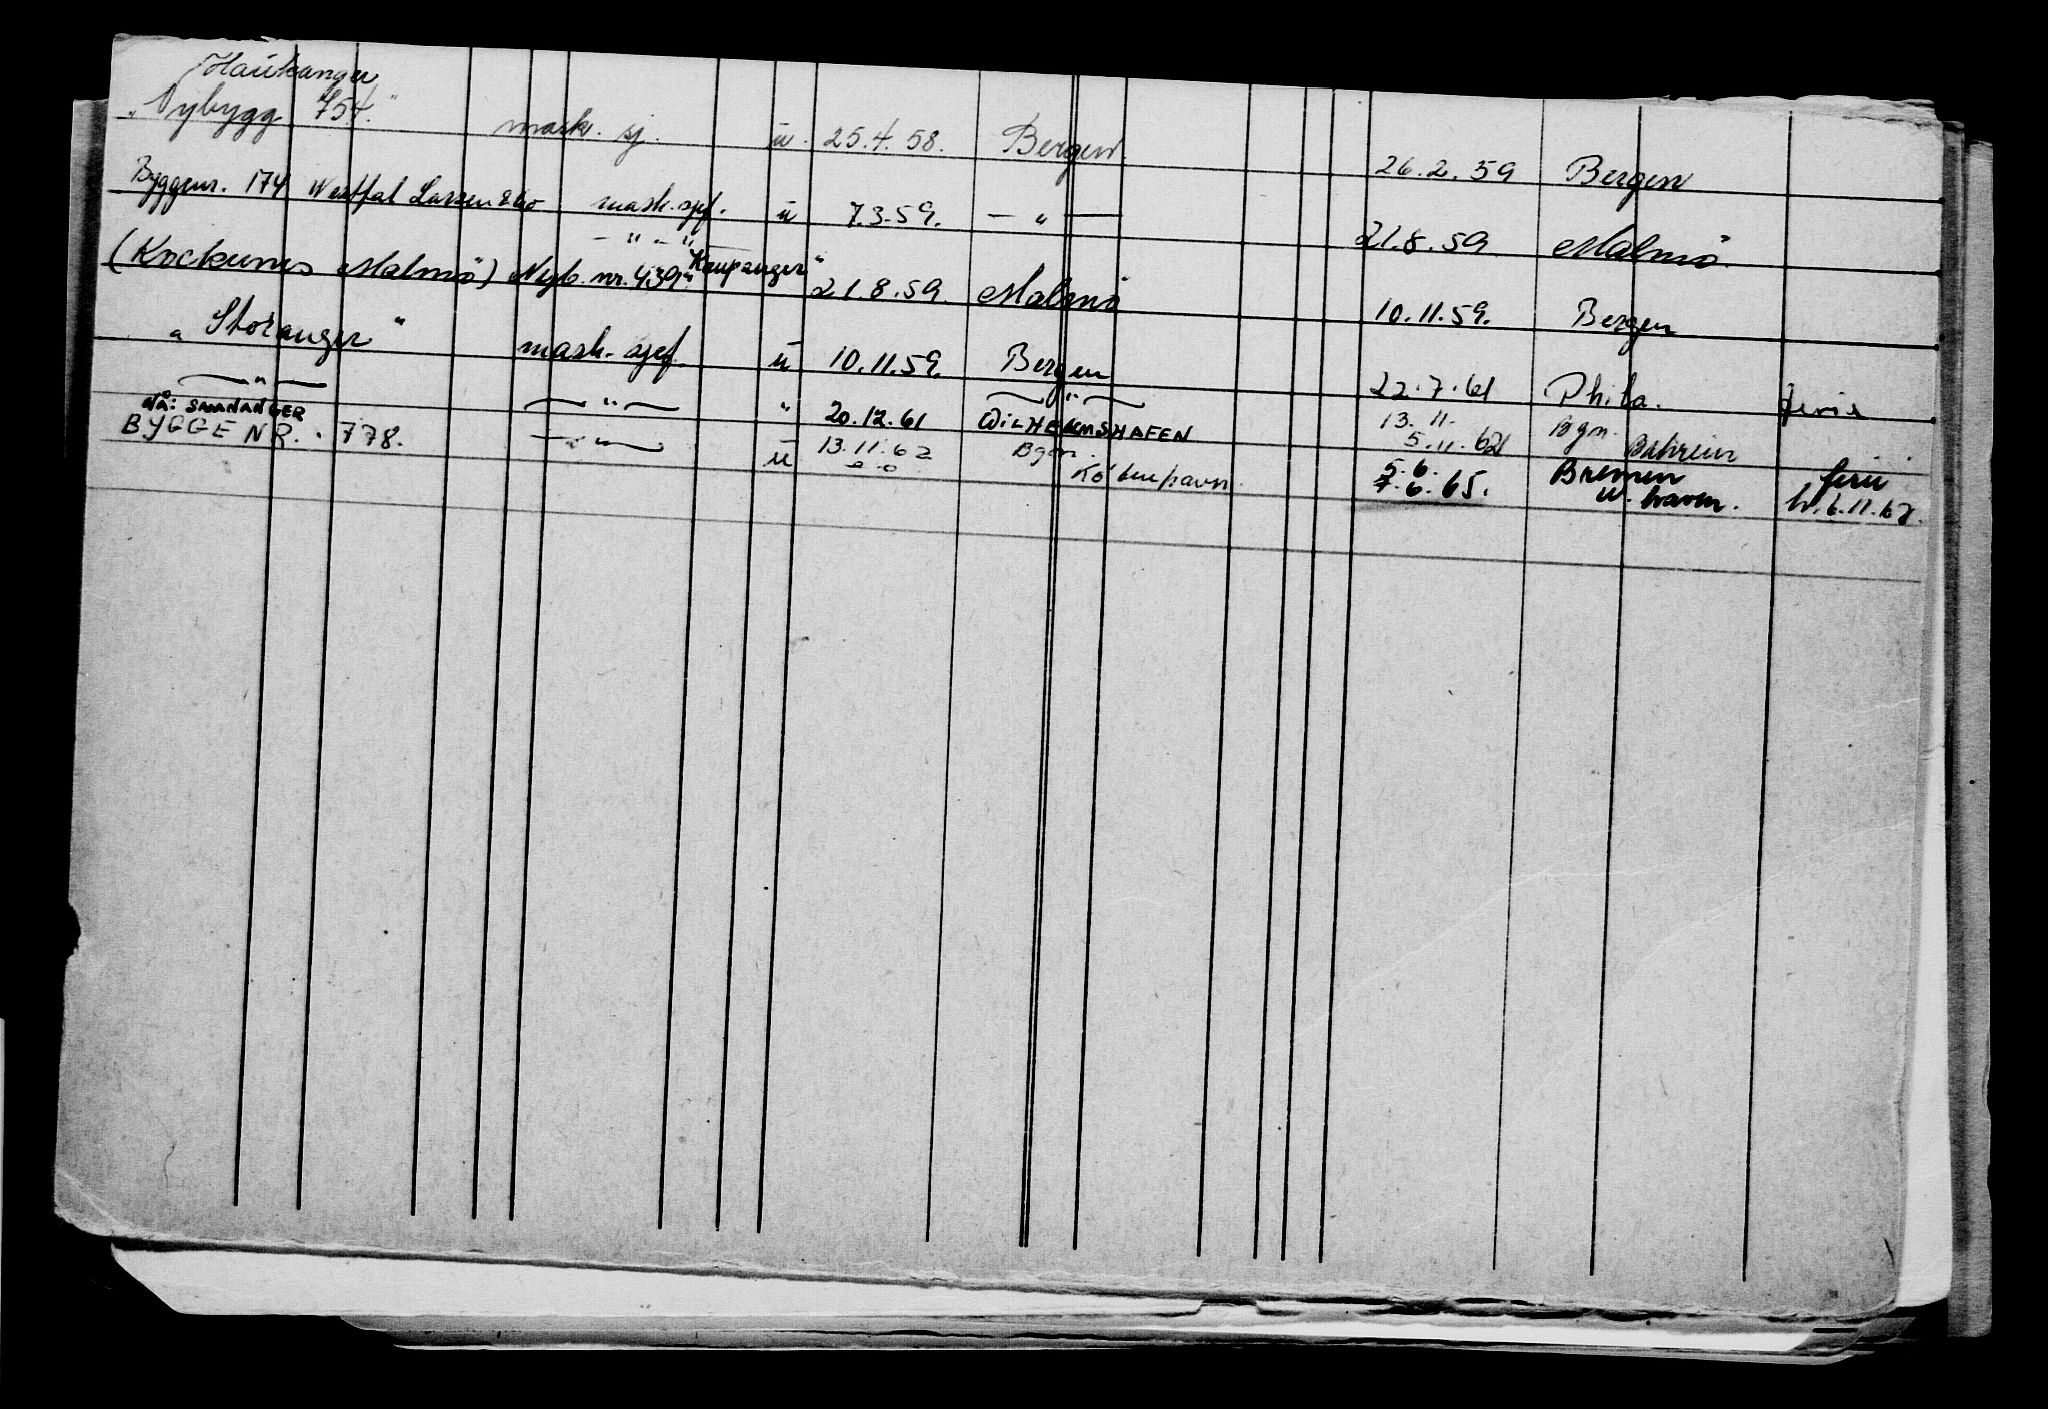 Haukanger
"Nybygg 754." mask. sj. u. 25.4.58. Bergen. 26.2.59 Bergen
Byggenr. 174 Westfal Larsen & Co mask. sjef. u 7.3.59. — " — 21.8.59 Malmö
— " — " —
(Kockums Malmö) Nyb. nr. 439 "Kaupanger" 21.8.59. Malmö 10.11.59. Bergen
"Storanger" mask. sjef. u 10.11.59. Bergen 22.7.61 Phila. ferie
— " — — " — " 20.12.61 — " — WILHELMSHAFEN 13.11. Bgn.
5.11.62 Bahrein
Nå: SAMNANGER
BYGGE NR. 778. — " — u 13.11.62 Bgn. 5.6. Bremen ferie
København. 7.6.65. W. haven.